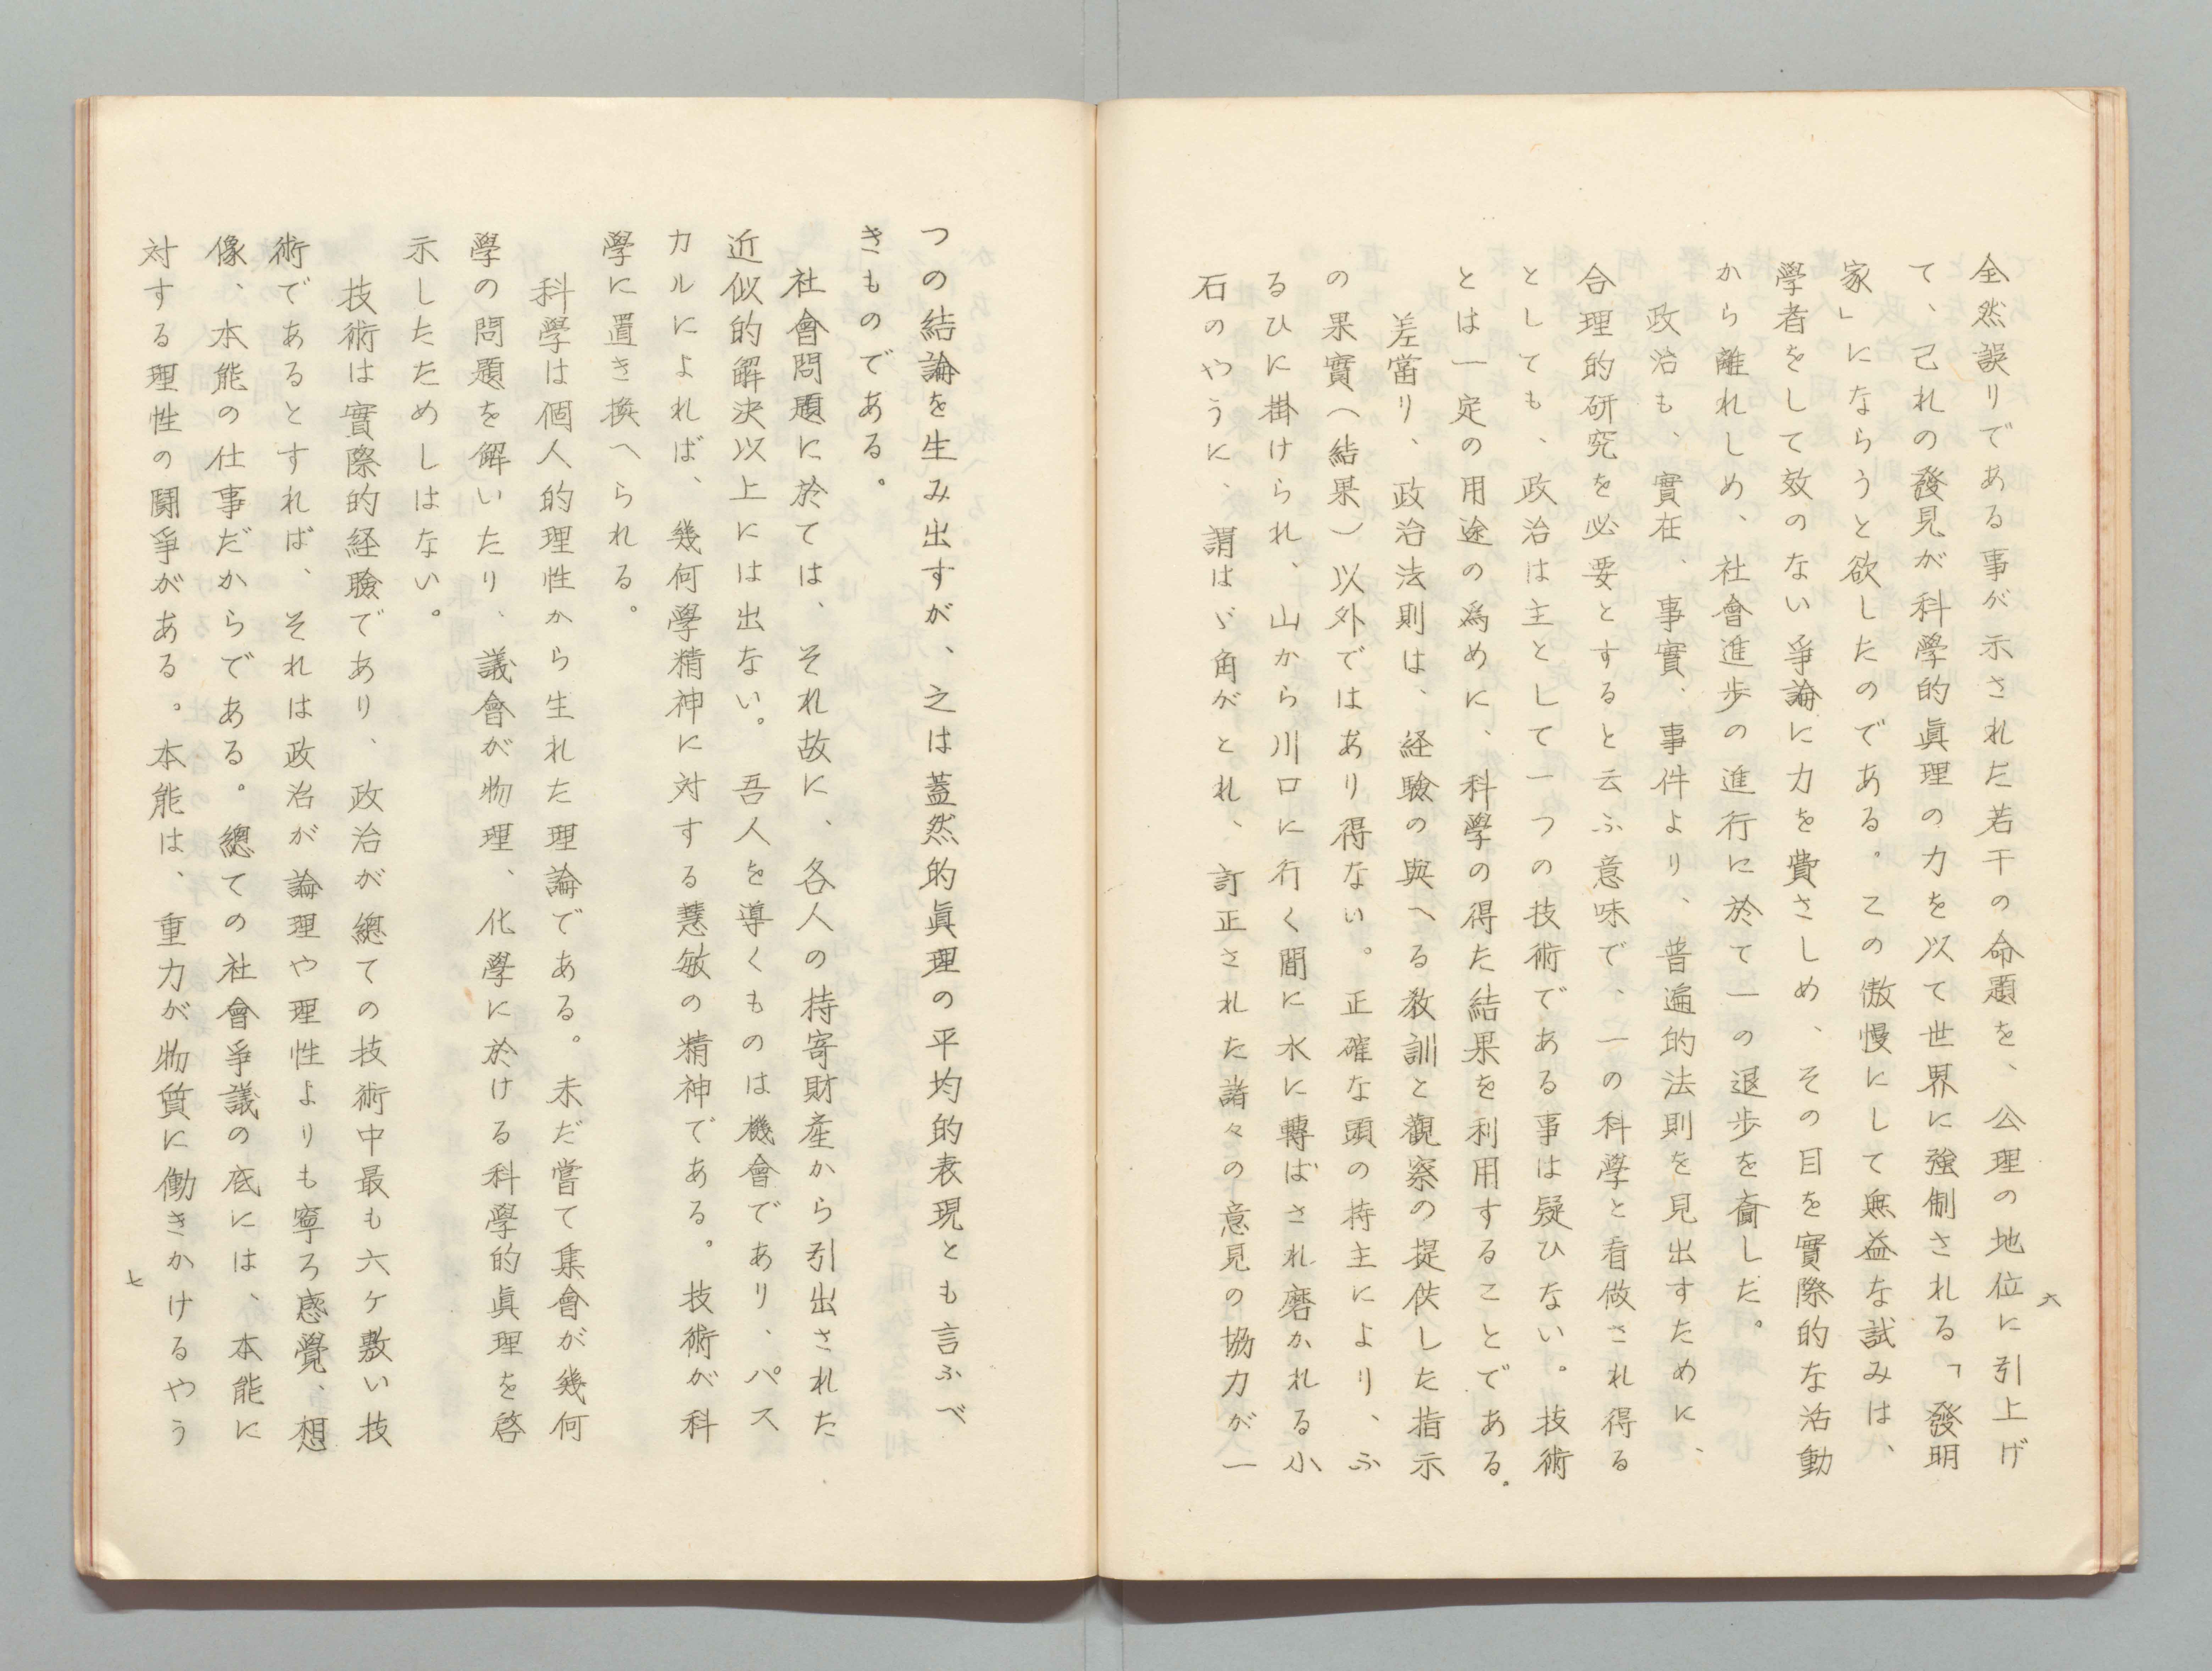 全然誤りである事が示された若干の命題を、公理の地位に引上げ
て、己れの發見が科學的眞理の力を以て世界に強制される「發明
家」にならうと欲したのである。この傲慢にして無益な試みは、
學者をして效のない爭論に力を費さしめ、その目を實際的な活動
から離れしめ、社會進歩の進行に於て一の退歩を齎した。
政治も、實在、事實、事件より、普遍的法則を見出すために、
合理的研究を必要とすると云ふ意味で、一の科學と看做され得る
としても、政治は主として一つの技術である事は疑ひない。技術
とは一定の用途の爲めに、科學の得た結果を利用することである。
差當り、政治法則は、経驗の與へる教訓と觀察の提供した指示
の果實（結果）以外ではあり得ない。正確な頭の持主により、ふ
るひに掛けられ、山から川口に行く間に水に轉ばされ磨かれる小
石のやうに、謂はゞ角がとれ、訂正された諸々の意見の協力が一
六
つの結論を生み出すが、之は蓋然的眞理の平均的表現とも言ふべ
きものである。
社會問題に於ては、それ故に、各人の持寄財産から引出された
近似的解決以上には出ない。吾人を導くものは機會であり、パス
カルによれば、幾何學精神に対する慧敏の精神である。技術が科
學に置き換へられる。
科學は個人的理性から生れた理論である。未だ嘗て集會が幾何
學の問題を解いたり、議會が物理、化學に於ける科學的眞理を啓
示したためしはない。
技術は實際的経驗であり、政治が總ての技術中最も六ケ敷い技
術であるとすれば、それは政治が論理や理性よりも寧ろ感覺、想
像、本能の仕事だからである。總ての社會爭議の底には、本能に
対する理性の鬪爭がある。本能は、重力が物質に働きかけるやう
七